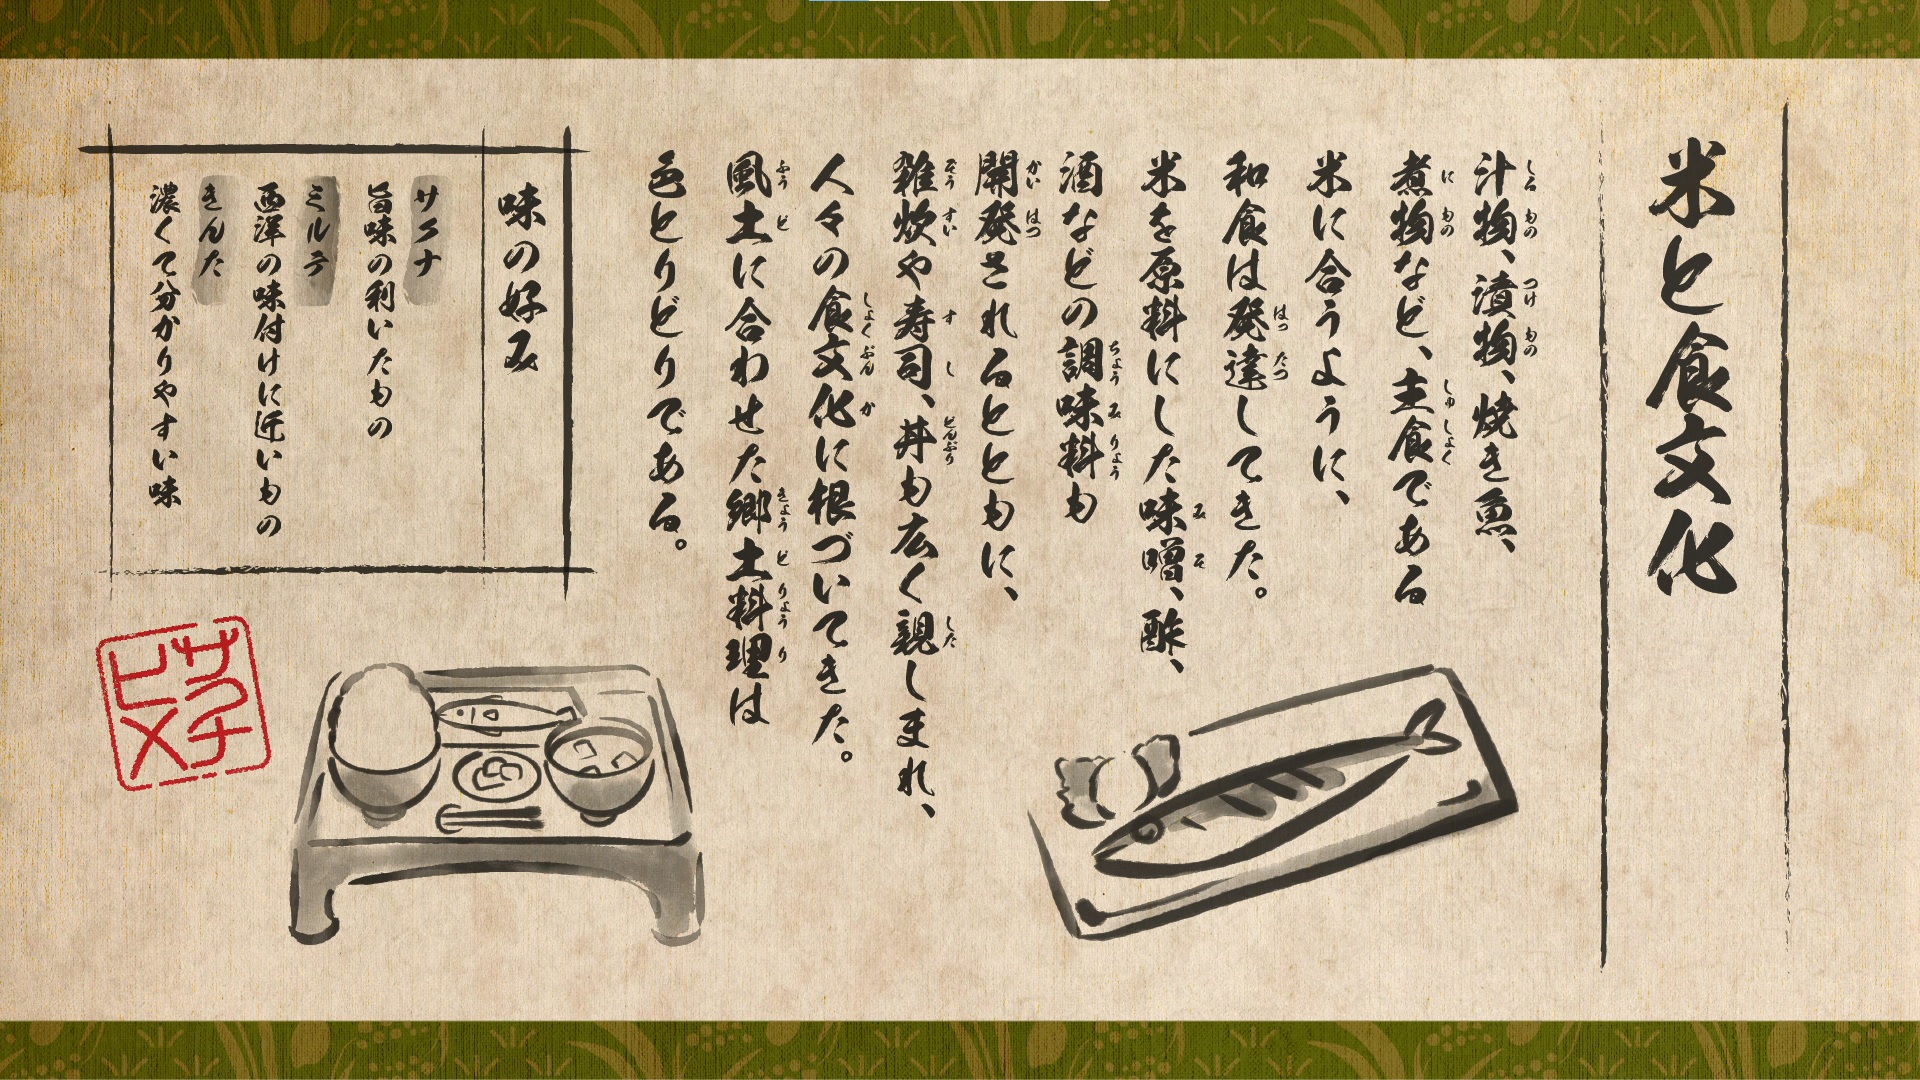 米と食文化
汁物、漬物、焼き魚、
煮物など、主食である
米に合うように、
和食は発達してきた。
米を原料にした味噌、酢、
酒などの調味料も
開発されるとともに、
雑炊や寿司、丼も広く親しまれ、
人々の食文化に根づいてきた。
風土に合わせた郷土料理は
色とりどりである。
味の好み
サクナ
旨味の利いたもの
ミルテ
西洋の味付けに近いもの
きんた
濃くて分かりやすい味
サクナ
ヒメ